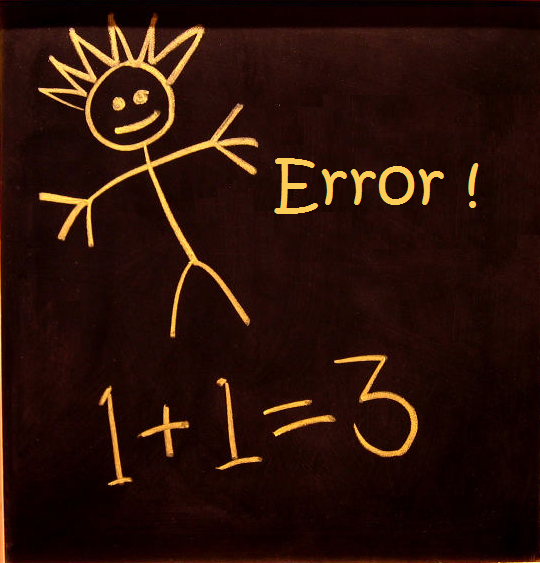 Error !
1+1=3